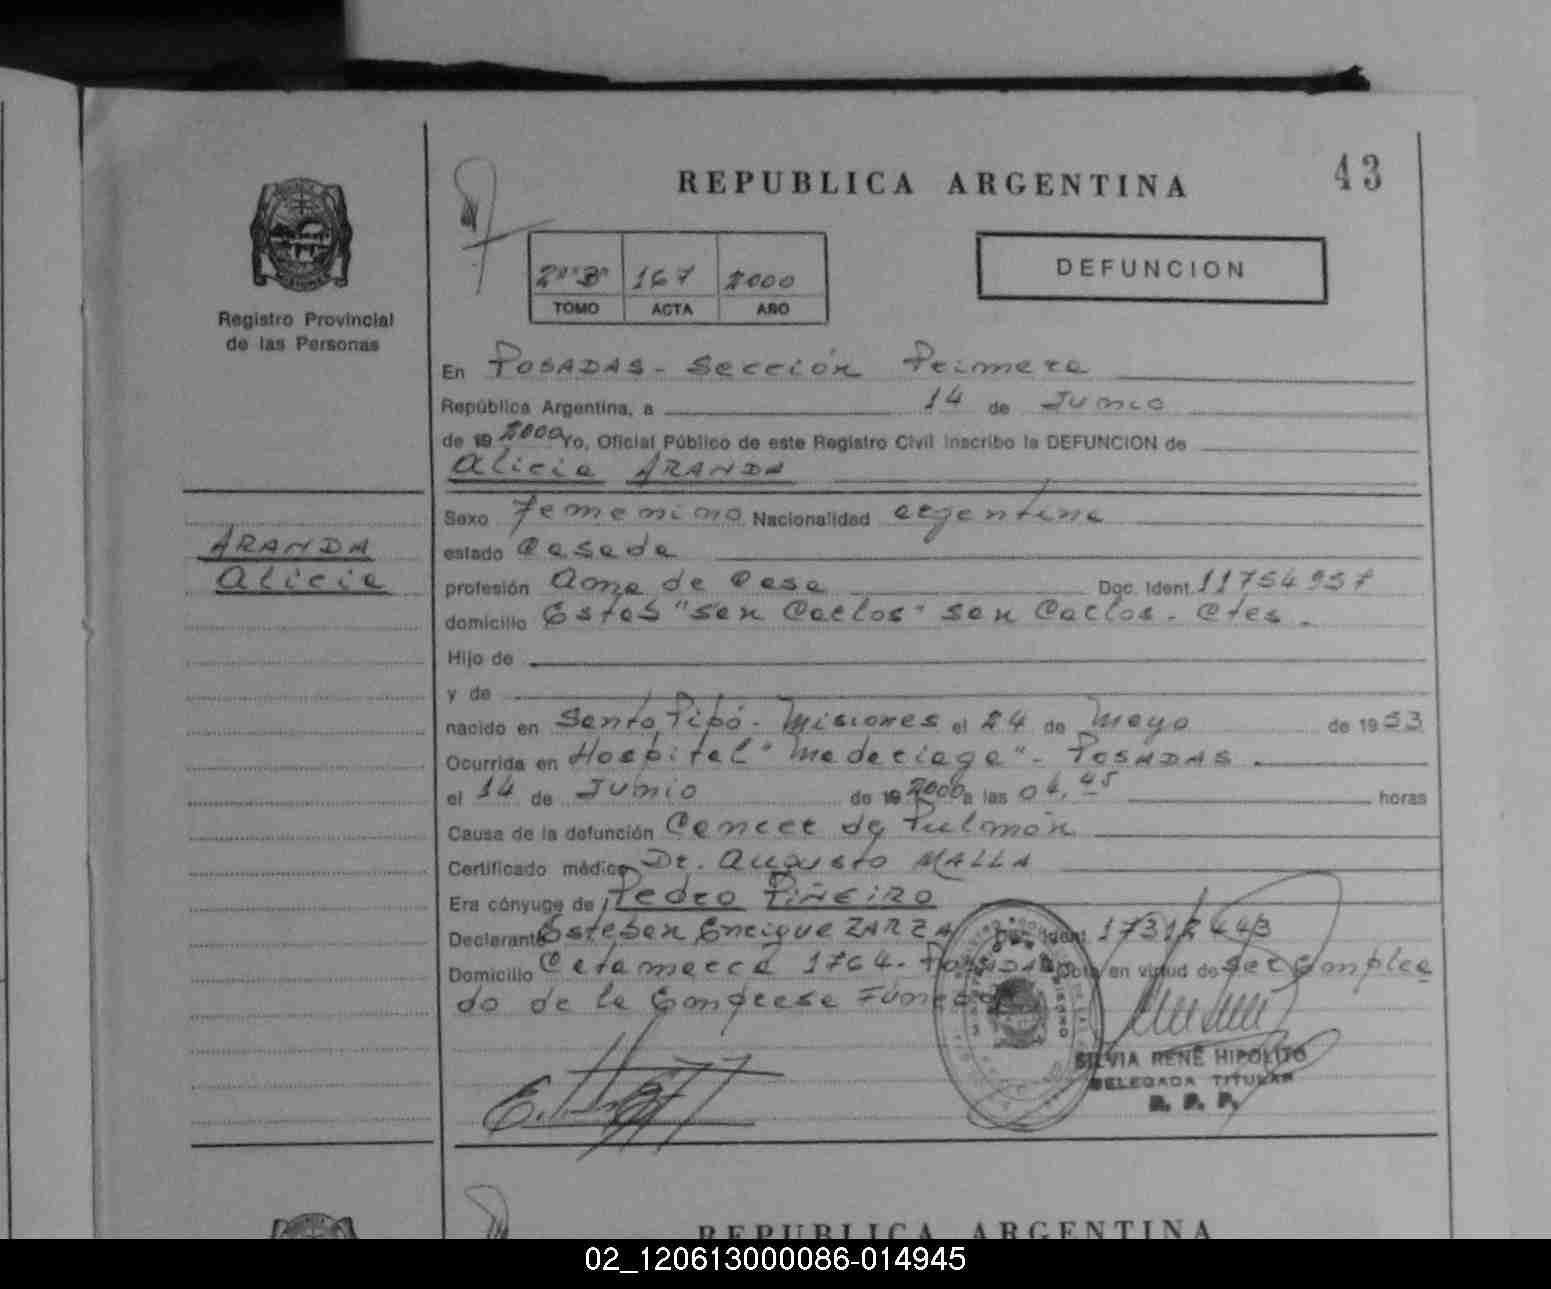 43
REPUBLICA ARGENTINA
DEFUNCION
2º "B" 167 2000
TOMO ACTA AÑO
Registro Provincial
de las Personas
En POSADAS - Sección Primera
República Argentina, a 14 de Junio
de 19 2000 Yo, Oficial Público de este Registro Civil inscribo la DEFUNCION de
Alicia ARANDA
ARANDA
Alicia
Sexo Femenino Nacionalidad argentina
estado Casada
profesión Ama de Casa Doc. Ident. 11754937
domicilio Estab "San Carlos" San Carlos - Ctes.
Hijo de
y de
nacido en Santo Pipó - Misiones el 24 de Mayo de 1953
Ocurrida en Hospital "Madariaga" - POSADAS
el 14 de Junio de 19 2000 a las 04,45 horas
Causa de la defunción Cancer de Pulmón
Certificado médico Dr. Augusto MALLA
Era cónyuge de Pedro PIÑEIRO
Declarante Esteban Enrique ZARZA Doc. Ident. 17312443
Domicilio Catamarca 1764 - POSADAS en virtud de ser emplea
do de la Empresa Fúnebre
SILVIA RENE HIPOLITO
DELEGADA TITULAR
R. P. P.
REPUBLICA ARGENTINA
02_120613000086-014945